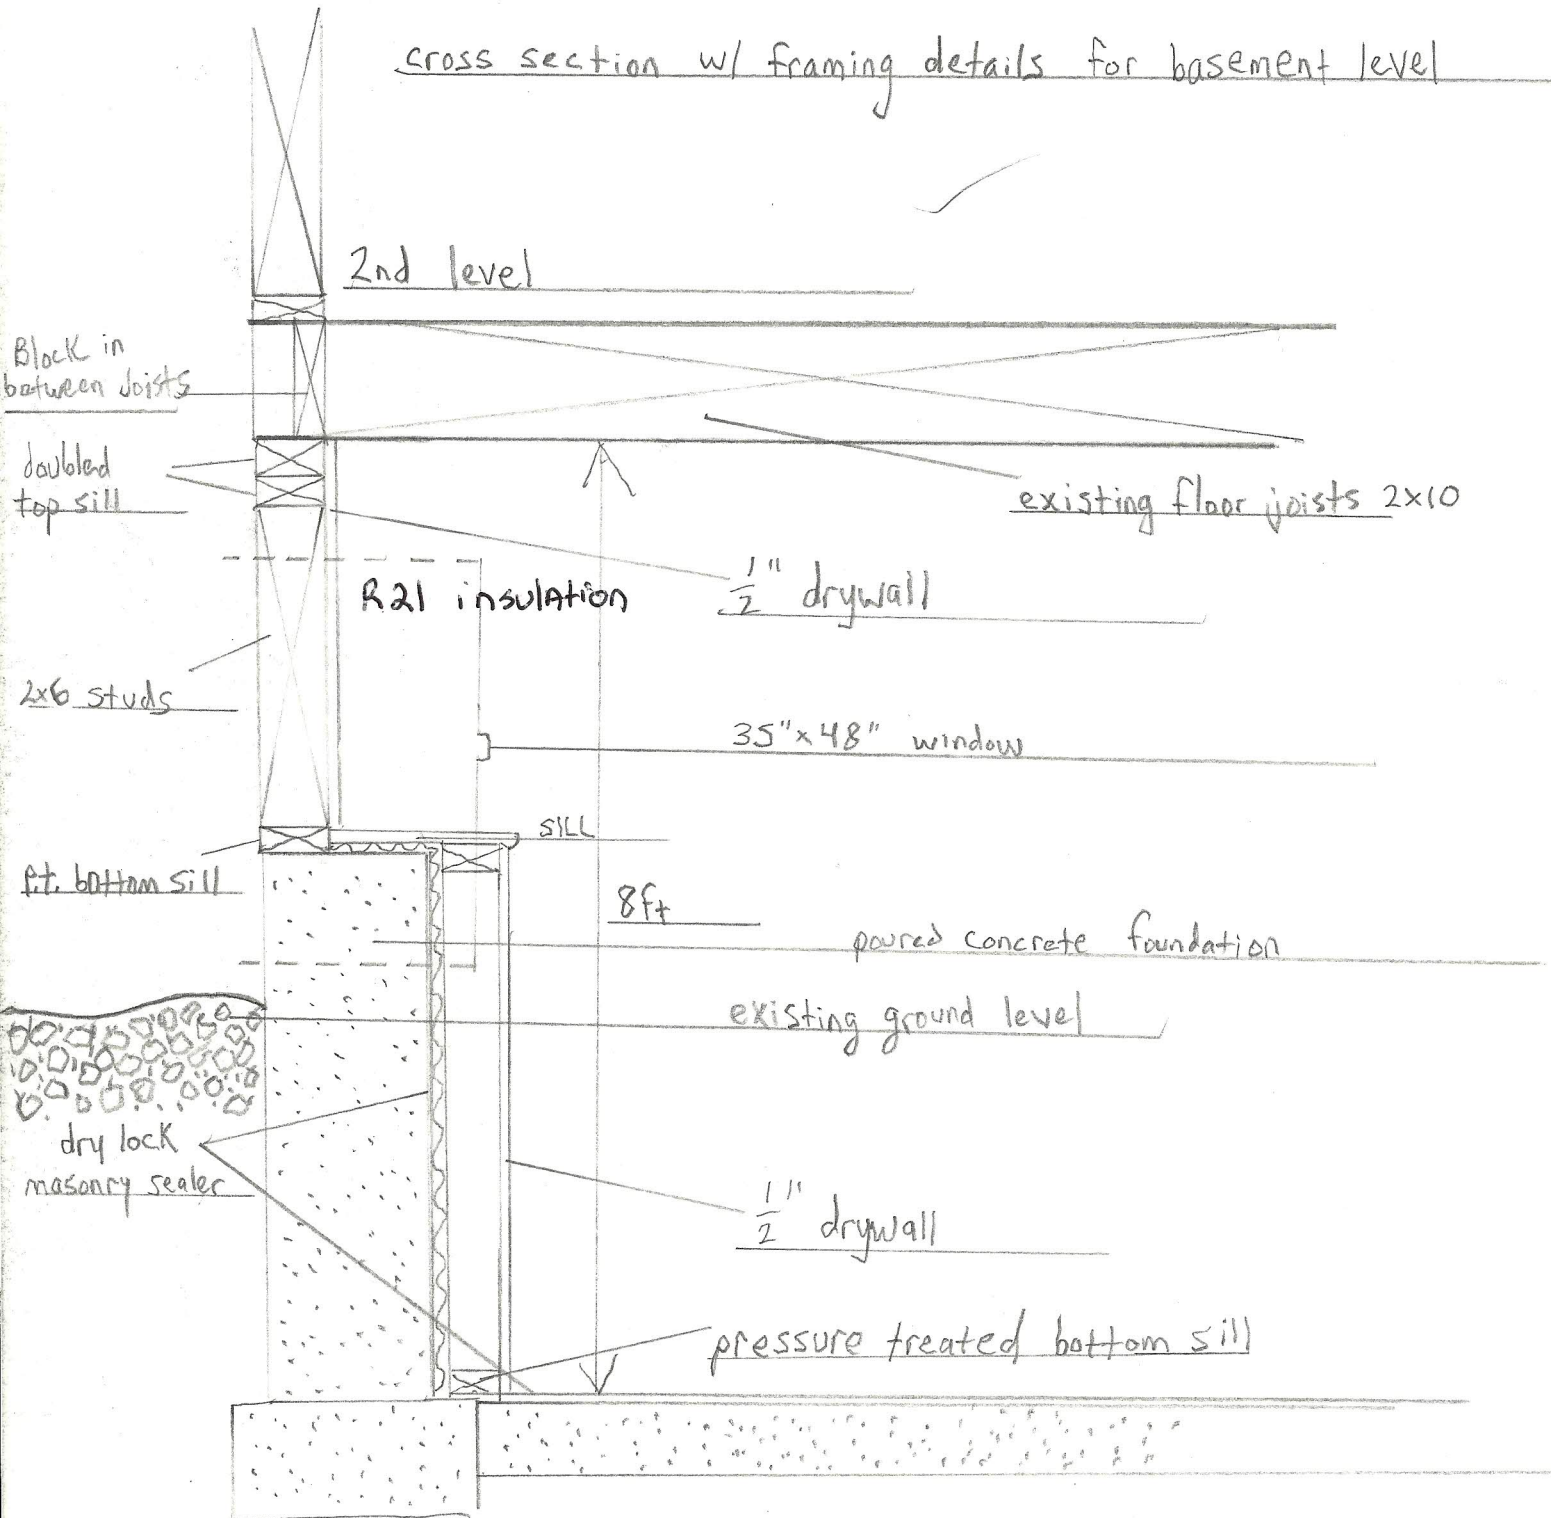 cross section w/ framing details for basement level
2nd level
Block in
between Joists
doubled
top sill
existing floor joists 2x10
1/2" drywall
R21 insulation
2x6 studs
35"x48" window
SILL
p.t. bottom sill
8ft
poured concrete foundation
existing ground level
dry lock
masonry sealer
1/2" drywall
pressure treated bottom sill